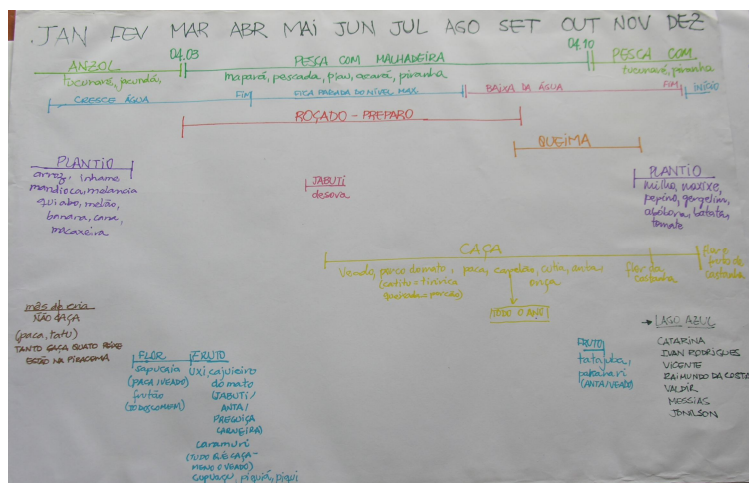 JAN FEV MAR ABR MAI JUN JUL AGO SET OUT NOV DEZ
ANZOL 04.03 PESCA COM MALHADEIRA 04.10 PESCA COM
tucunaré, jacundá, mapará, pescada, piau, acará, piranha tucunaré, piranha
CRESCE ÁGUA FIM FICA PARADA DO NÍVEL MAX BAIXA DA ÁGUA FIM INÍCIO
ROÇADO - PREPARO
QUEIMA
PLANTIO
arroz, inhame
mandioca, melancia
quiabo, melão,
banana, cana,
macaxeira
JABUTI
desova
PLANTIO
milho, maxixe,
pepino, gergelim,
abóbora, batata,
tomate
CAÇA
Veado, porco do mato, paca, capelão, cutia, anta
(catitu = tiririca
queixada = porcão)
onça
TODO O ANO
flor da
castanha
flor e
fruto de
castanha
mês de cria
NÃO CAÇA
(paca, tatu)
TANTO CAÇA QUATO PEIXE
ESTÃO NA PIRACEMA
FLOR
sapucaia
(PACA/VEADO)
(TODOS COMEM)
FRUTO
uxi, cajueiro
do mato
(JABUTI/
ANTA/
PREGUIÇA
caramuri
MENO O VEADO)
cupuaçu, piquiá, piqui
FRUTO
tatajuba,
(ANTA/VEADO)
→ LAGO AZUL
CATARINA
JUAN RODRIGUES
VICENTE
RAIMUNDO DA COSTA
VALDIR
MESSIAS
JONILSON